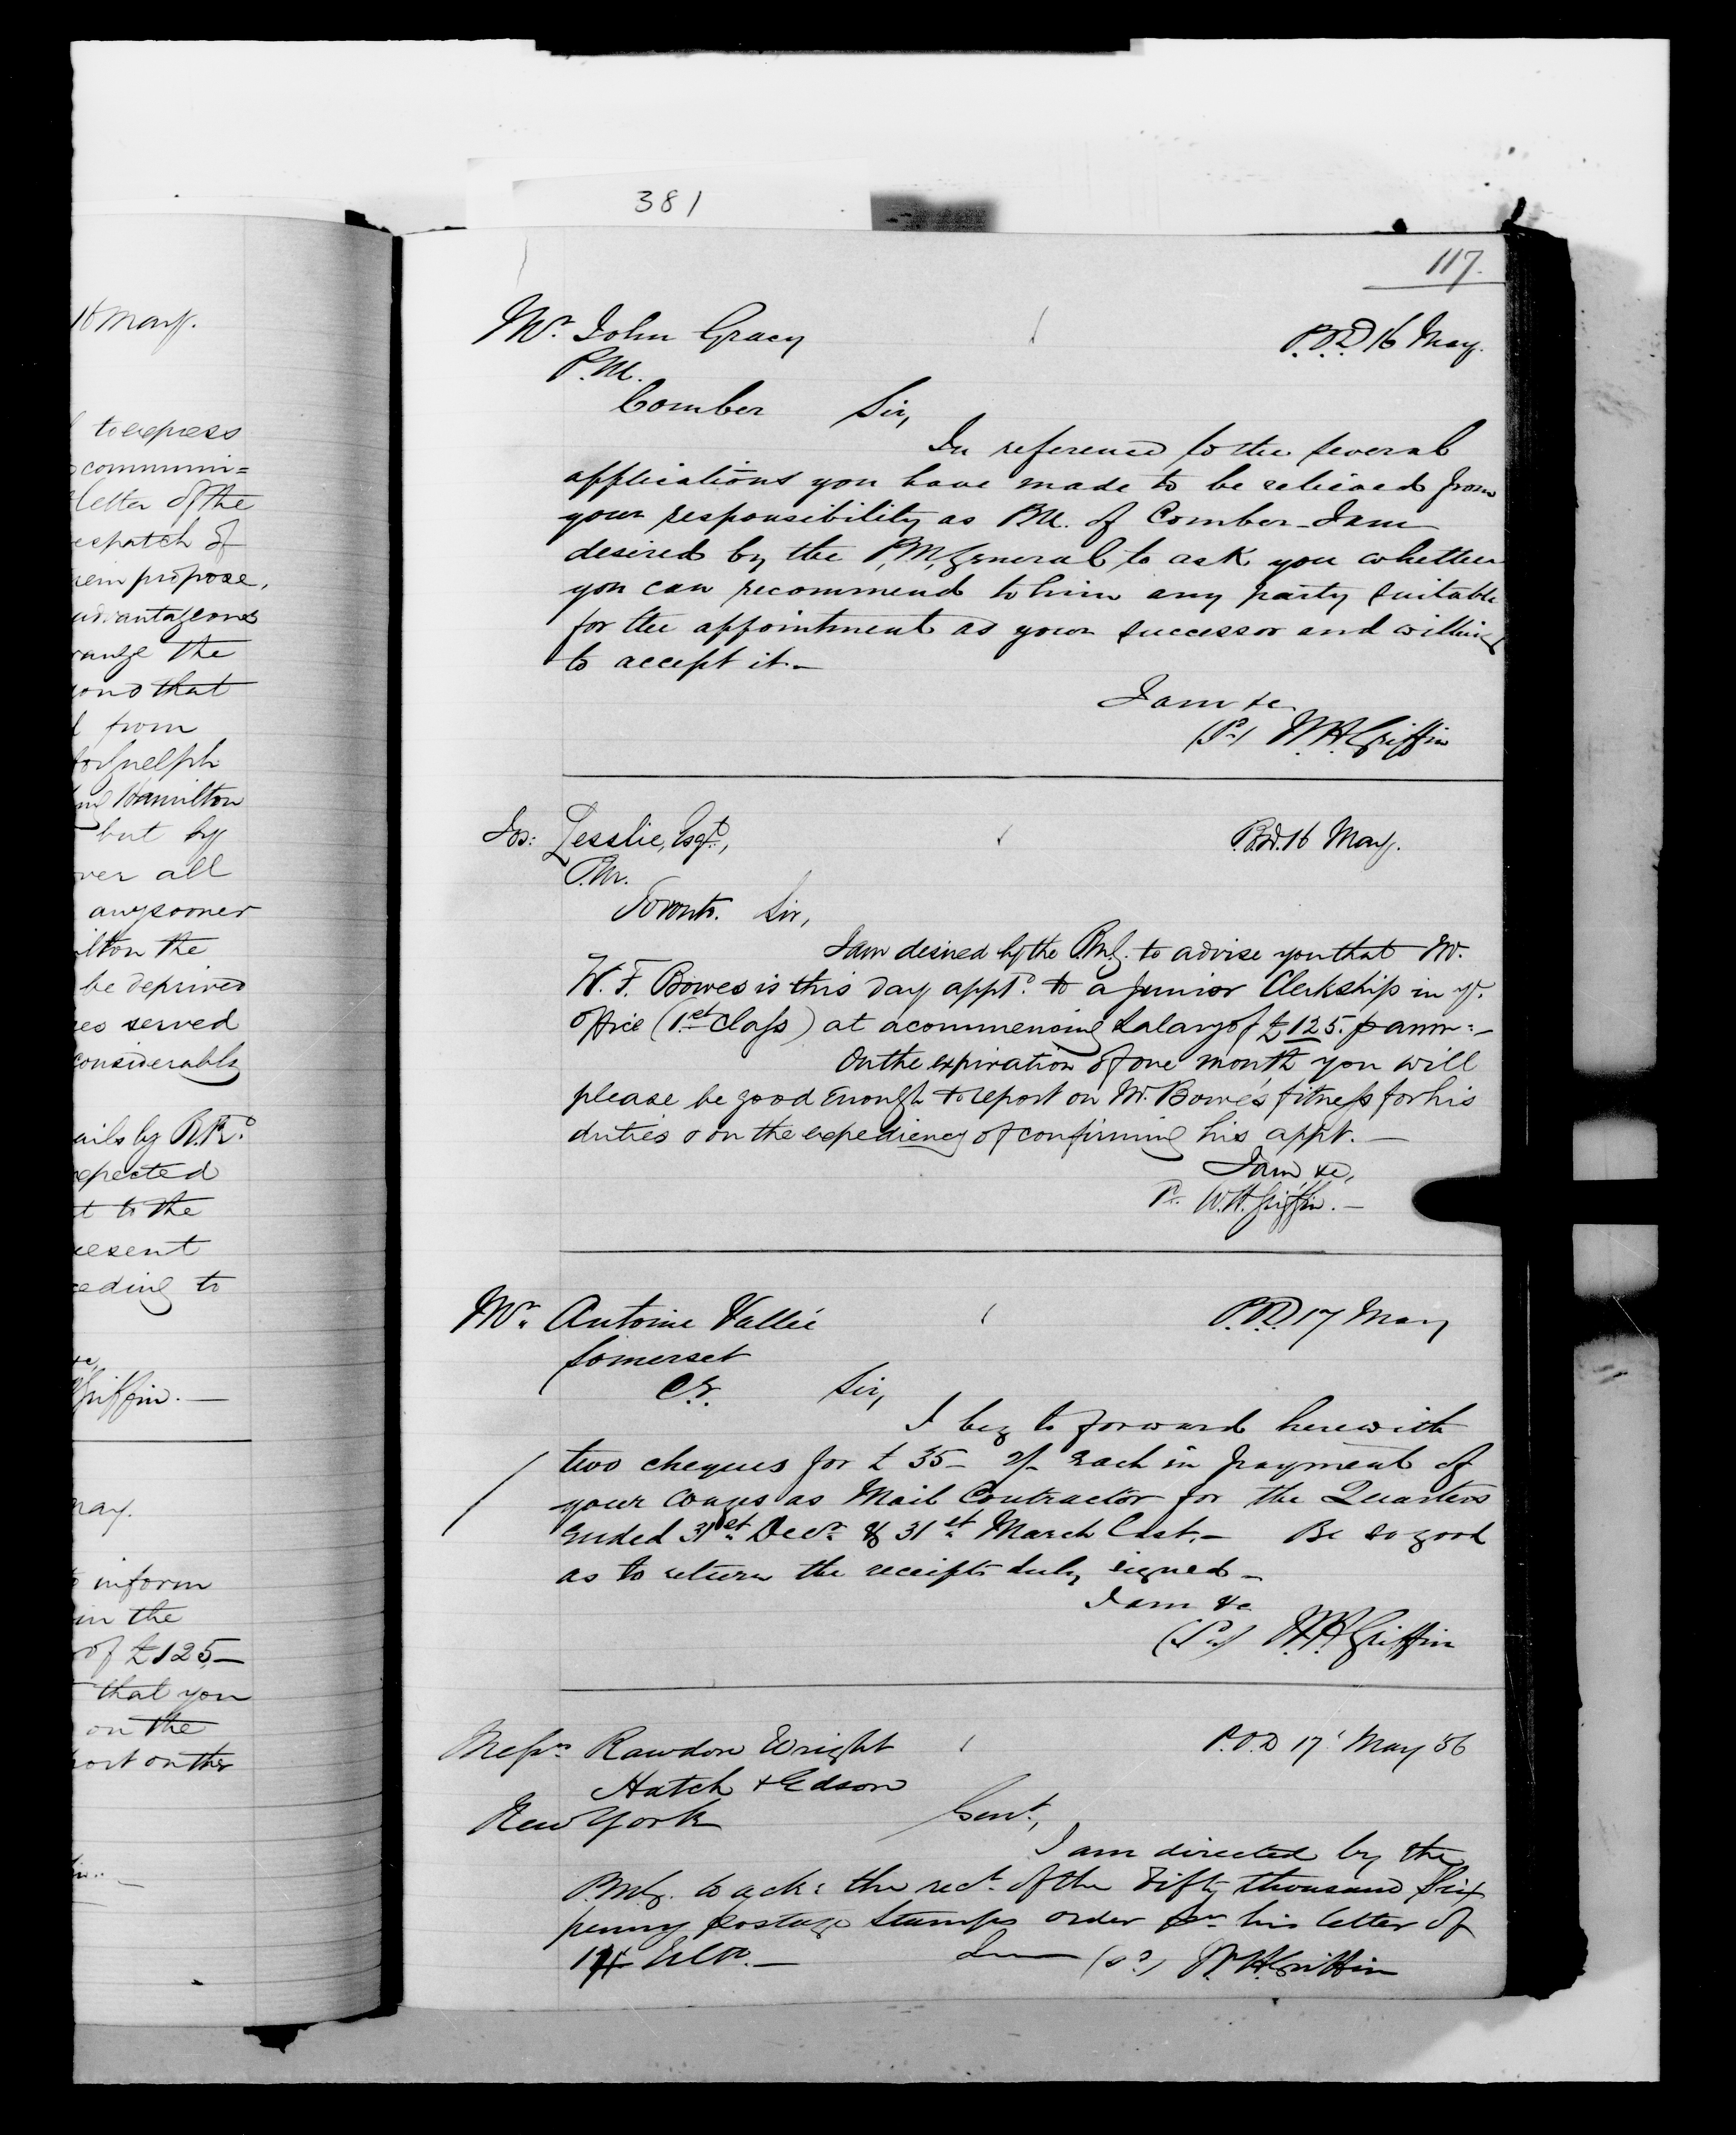 381
117.
16 May.
to express
communi=
letter of the
espatch of
rein propose,
advantageous
range the
yond that
from
to Guelph
and Hamilton
but by
over all
any sooner
ilton the
be deprived
es served
considerably
ails by R.R.
xpected
t to the
resent
eeding to
&c,
Griffin. —
May.
to inform
in the
of £125 —
that you
on the
port on the
Mr. John Gracy
P.O.D 16 May.
P.M.
Comber Sir,
In reference to the several
applications you have made to be relieved from
your responsibility as P.M. of Comber - I am
desired by the P.M. General to ask you whether
you can recommend to him any party suitable
for the appointment as your successor and willing
to accept it. —
I am &c
(Sd) W.H. Griffin
Jos: Lesslie, Esqr.,
P.O.D. 16 May.
P.M.
Toronto. Sir,
I am desired by the P.M.G. to advise you that Mr.
W. F. Bowes is this day apptd. to a Junior Clerkship in yr.
office (1st Class) at a commencing Salary of £125. p ann: —
On the expiration of one month you will
please be good enough to report on Mr. Bowe's fitness for his
duties & on the expediency of confirming his appt. —
I am, &c,
W.H. Griffin. —
Mr. Antoine Vallée
P.O.D. 17 May
Somerset
C.E. Sir,
I beg to forward herewith
two cheques for £ 35 - 2/- each in payment of
your as Mail Contractor for the Quarters
ended 31st Decr. & 31st March last. — Be so good
as to return the receipts duly signed —
I am &c
(Sd) W.H. Griffin
Messrs Rawdon Wright
P.O.D 17 May 56
Hatch & Edson
New York Gent,
I am directed by the
P.M.G. to ack: the rect. of the Fifty thousand Six
penny postage Stamps order pr his letter of
Ulto. — (Sd) W.H. Griffin